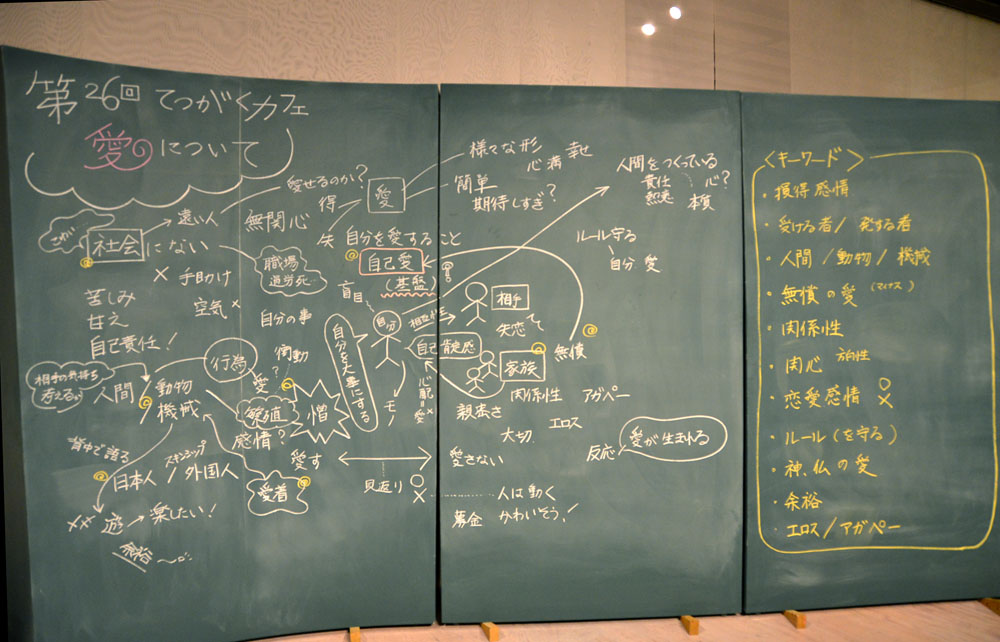 第26回 てつがくカフェ
愛について
愛せるのか?
愛
様々な形
心満 幸せ
簡単
期待しすぎ?
人間をつくっている
責任
心?
本質
遠い人
無関心
得
失
自分を愛すること
社会にない
自己愛
(基盤)
ルール守る
自分 愛
職場
過労死…
× 手助け
空気 ×
自分の事
苦しみ
甘え
自己責任!
盲目
自分
相手
失恋
自己肯定感
家族
無償
自分を大事にする。
心配=愛
モノ
行為
衝動
?
相手の気持ち
人間
動物
機械
愛
繁殖
憎
感情?
愛す
愛さない
関係性 アガペー
親密さ
エロス
大切
反応
愛が生まれる
背中で語る
スキンシップ
日本人 / 外国人
愛着
見返り
○
×
人は動く
募金 かわいそう!
遊 → 楽したい!
余裕
<キーワード>
・獲得感情
・受ける者 / 発する者
・人間 / 動物 / 機械
・無償の愛 (マイナス)
・関係性
・関心 方向性
・恋愛感情 ○ ×
・ルール(を守る)
・神、仏の愛
・余裕
・エロス/アガペー